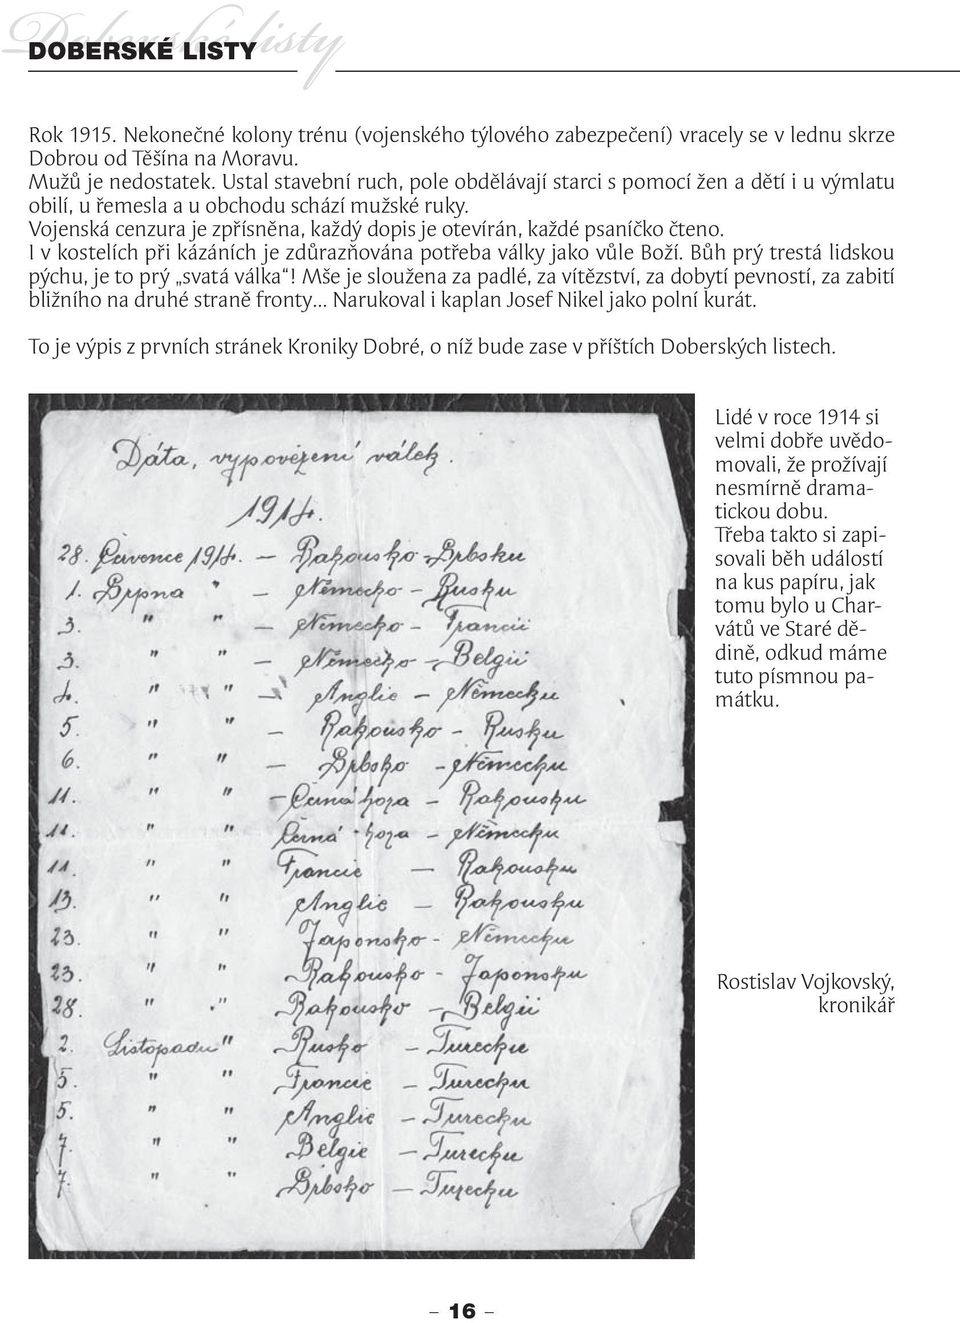 Doberské listy
DOBERSKÉ LISTY
Rok 1915. Nekonečné kolony trénu (vojenského týlového zabezpečení) vracely se v lednu skrze
Dobrou od Těšína na Moravu.
Mužů je nedostatek. Ustal stavební ruch, pole obdělávají starci s pomocí žen a dětí i u výmlatu
obilí, u řemesla a u obchodu schází mužské ruky.
Vojenská cenzura je zpřísněna, každý dopis je otevírán, každé psaníčko čteno.
I v kostelích při kázáních je zdůrazňována potřeba války jako vůle Boží. Bůh prý trestá lidskou
pýchu, je to prý „svatá válka“! Mše je sloužena za padlé, za vítězství, za dobytí pevností, za zabití
bližního na druhé straně fronty... Narukoval i kaplan Josef Nikel jako polní kurát.
To je výpis z prvních stránek Kroniky Dobré, o níž bude zase v příštích Doberských listech.
Dáta, vypovězení válek.
1914.
28. Července 1914. – Rakousko – Srbsku
1. Srpna " – Německo – Rusku
3. " " – Německo – Francii
3. " " – Německo – Belgii
4. " " – Anglie – Německu
5. " " – Rakousko – Rusku
6. " " – Srbsko – Německu
11. " " – Černá hora – Rakousku
11. " " Černá hora – Německu
11. " " Francie – Rakousku
13. " " Anglie – Rakousku
23. " " Japonsko – Německu
23. " " Rakousko – Japonsku
28. " " Rakousko – Belgii
2. Listopadu " Rusko – Turecku
5. " " Francie – Turecku
5. " " Anglie – Turecku
7. " " Belgie – Turecku
7. " " Srbsko – Turecku
Lidé v roce 1914 si
velmi dobře uvědo-
movali, že prožívají
nesmírně drama-
tickou dobu.
Třeba takto si zapi-
sovali běh událostí
na kus papíru, jak
tomu bylo u Char-
vátů ve Staré dě-
dině, odkud máme
tuto písmnou pa-
mátku.
Rostislav Vojkovský,
kronikář
– 16 –